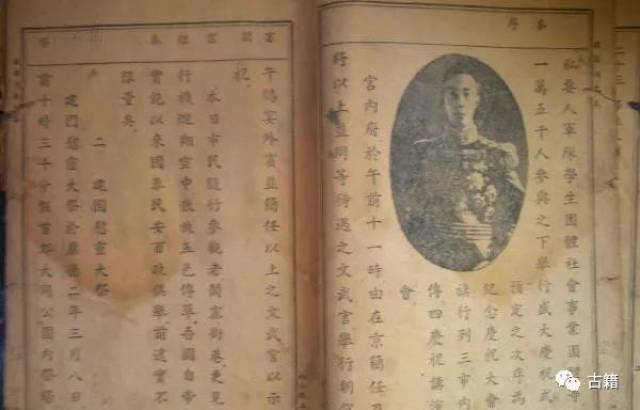 私要人軍隊學生團體社會事業團
一萬五千人參與之下舉行盛大慶祝式
預定之次序為
紀念慶祝大會
旗行列三市內
傳四慶祝講演
會
宮內府於午前十一時由在京簡任及
將以上並同等待遇之文武官舉行朝
午特宴外賓並簡任以上之文武官以示
祝
本日市民隨行參觀者闐塞街巷更見
行機迴翔空中散放五色傳單吾國自帝
實施以來國泰民安百政俱舉前途實不
限量矣
二 建國慰靈大祭
建國慰靈大祭於康德二年三月八日
前十時三十分假首都大同公園內祭場
古籍